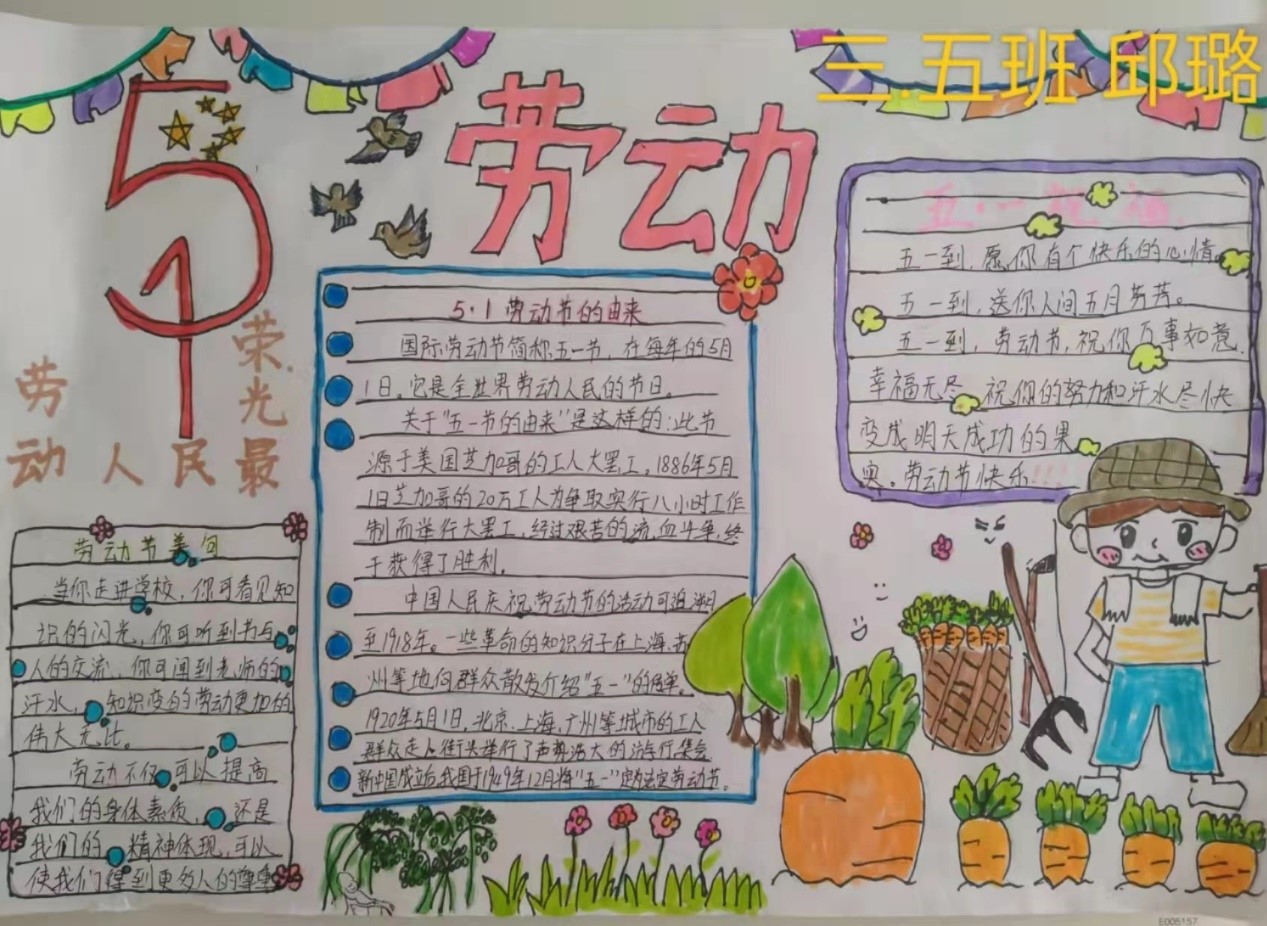 三.五班 邱璐
51
劳动
劳动人民最光荣
5·1劳动节的由来
国际劳动节简称五一节，在每年的5月
1日。它是全世界劳动人民的节日。
关于"五一节的由来"是这样的：此节
源于美国芝加哥的工人大罢工。1886年5月
1日芝加哥的20万工人为争取实行八小时工作
制而举行大罢工，经过艰苦的流血斗争，终
于获得了胜利。
中国人民庆祝劳动节的活动可追溯
至1918年。一些革命的知识分子在上海、苏
州等地向群众散发介绍"五一"的传单。
1920年5月1日，北京、上海、广州等城市的工人
群众走上街头举行了声势浩大的游行集会
新中国成立后我国于1949年12月将"五一"定为法定劳动节。
五·一祝福
五一到，愿你有个快乐的心情。
五一到，送你人间五月芳芳。
五一到，劳动节，祝你万事如意
幸福无尽，祝你的努力和汗水尽快
变成明天成功的果
实。劳动节快乐!!!
劳动节美句
当你走进学校，你可看见知
识的闪光，你可听到书与
人的交流，你可闻到老师的
汗水，知识变的劳动更加的
伟大无比。
劳动不仅可以提高
我们的身体素质，还是
我们的精神体现，可以
使我们得到更多人的尊重
E005157